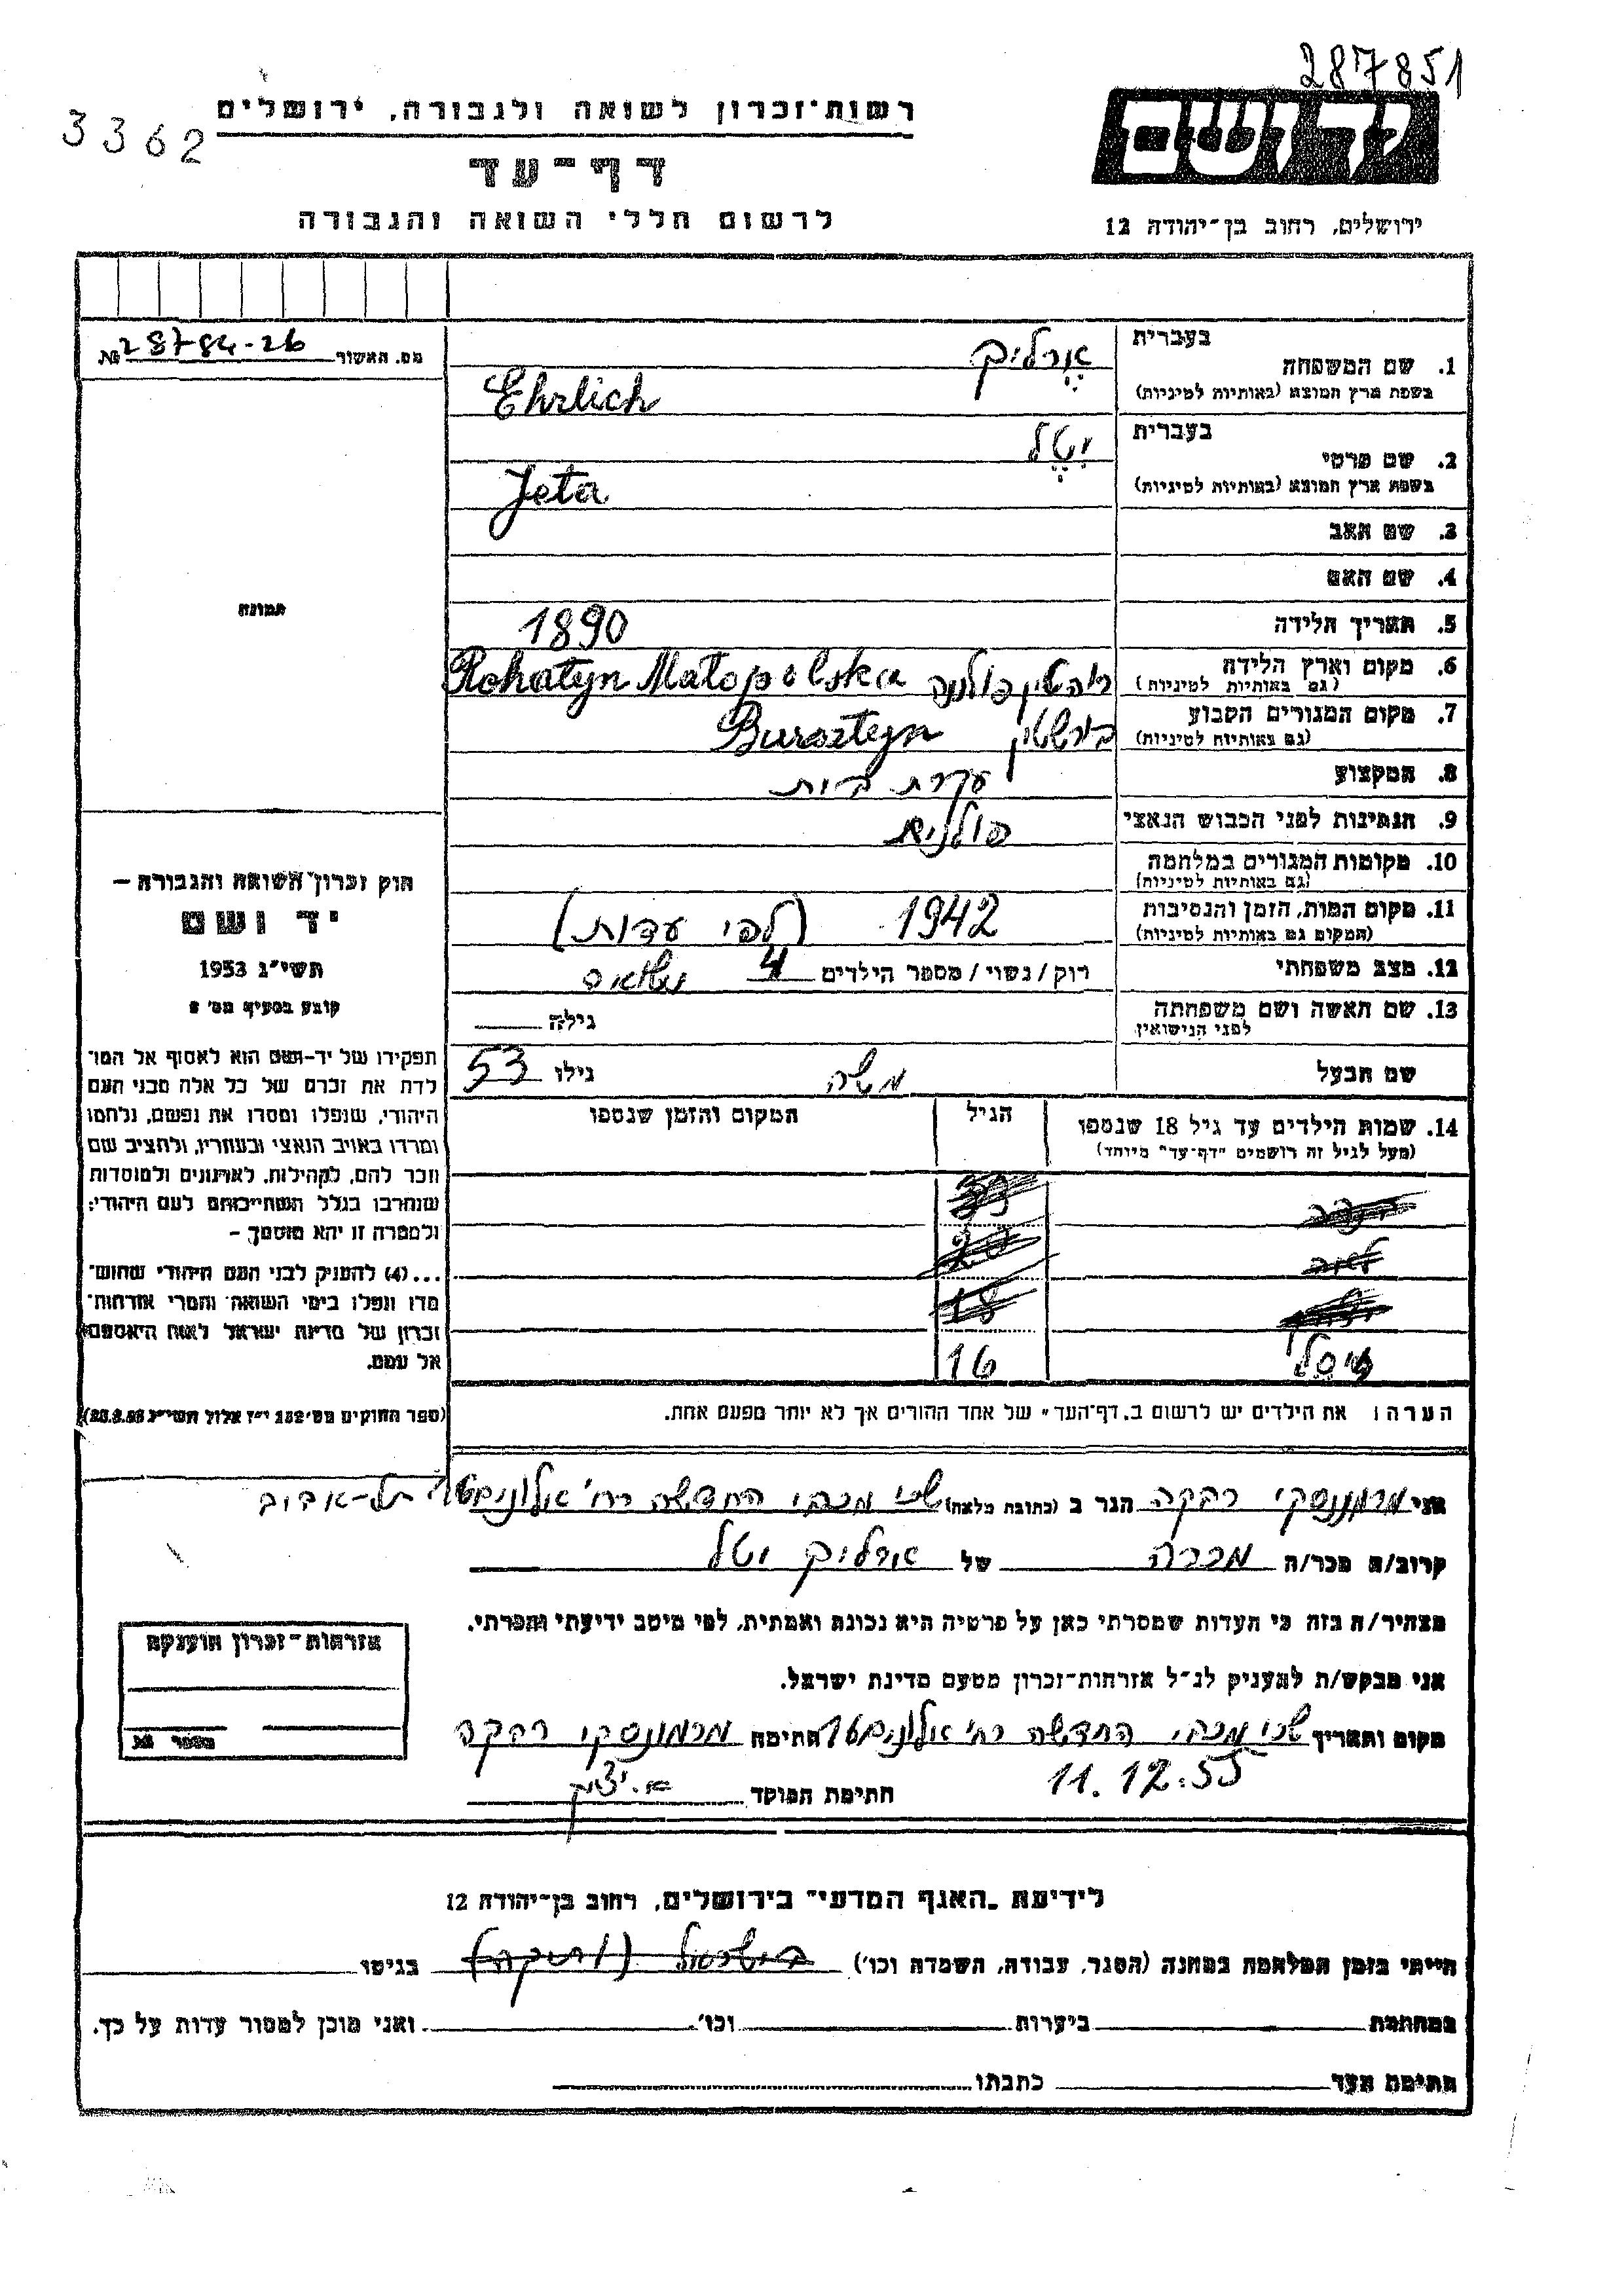 287851
3362
רשות-זכרון לשואה ולגבורה, ירושלים
דף-עד
לרשום חללי השואה והגבורה
ידושם
ירושלים, רחוב בן-יהודה 12
מס. האשור 28784-26 №
בעברית
1. שם המשפחה ארליך
בשפת ארץ המוצא (באותיות לטיניות) Ehrlich
בעברית
2. שם פרטי יטל
בשפת ארץ המוצא (באותיות לטיניות) Jeta
3. שם האב
4. שם האם
5. תאריך הלידה 1890
6. מקום וארץ הלידה רוהטין פולניה Rohatyn Małopolska
(גם באותיות לטיניות)
7. מקום המגורים הקבוע בורשטין Bursztyn
(גם באותיות לטיניות)
8. המקצוע עקרת בית
9. הנתינות לפני הכבוש הנאצי פולנית
10. מקומות המגורים במלחמה
(גם באותיות לטיניות)
11. מקום המות, הזמן והנסיבות 1942 (לפי עדות)
(המקום גם באותיות לטיניות)
12. מצב משפחתי רוק/נשוי/מספר הילדים 4
13. שם האשה ושם משפחתה גילה
לפני הנישואין
שם הבעל משה גילו 53
14. שמות הילדים עד גיל 18 שנספו הגיל המקום והזמן שנספו
(מעל לגיל זה רושמים "דף-עד" מיוחד)
20
18
16
הערה: את הילדים יש לרשום ב"דף-העד" של אחד ההורים אך לא יותר מפעם אחת.
תמונה
חוק זכרון השואה והגבורה –
יד ושם
תשי"ג 1953
קובע בסעיף מס' 2
תפקידו של יד-ושם הוא לאסוף אל המו־
לדת את זכרם של כל אלה מבני העם
היהודי, שנפלו ומסרו את נפשם, נלחמו
ומרדו באויב הנאצי ובעוזריו, ולהציב שם
וזכר להם, לקהילות, לארגונים ולמוסדות
שנחרבו בגלל השתייכותם לעם היהודי;
ולמטרה זו יהא מוסמך –
...(4) להעניק לבני העם היהודי שהוש־
מדו ונפלו בימי השואה והמרי אזרחות־
זכרון של מדינת ישראל לאות היאספם
אל עמם.
(ספר החוקים מס' 132 י"ז אלול תשי"ג 28.8.53)
אני מרמונסקי רבקה הגר ב (כתובת מלאה) שכ' מכבי החדשה רח' תל-אביב
קרוב/ה מכר/ה מכרה של ארליך יטל
מצהיר/ה בזה כי העדות שמסרתי כאן על פרטיה היא נכונה ואמתית, לפי מיטב ידיעתי והכרתי.
אני מבקש/ת להעניק לנ"ל אזרחות-זכרון מטעם מדינת ישראל.
מקום ותאריך שכ' מכבי החדשה רח' חתימה מרמונסקי רבקה
11.12.55
חתימת המוסד
אזרחות-זכרון הוענקה
מספר №
לידיעת "האגף המדעי" בירושלים, רחוב בן-יהודה 12
הייתי בזמן המלחמה במחנה (הסגר, עבודה, השמדה וכו') בישראל (ותיקה) בגיטו
במחתרת ביערות וכו' ואני מוכן למסור עדות על כך.
חתימת העד כתבתו